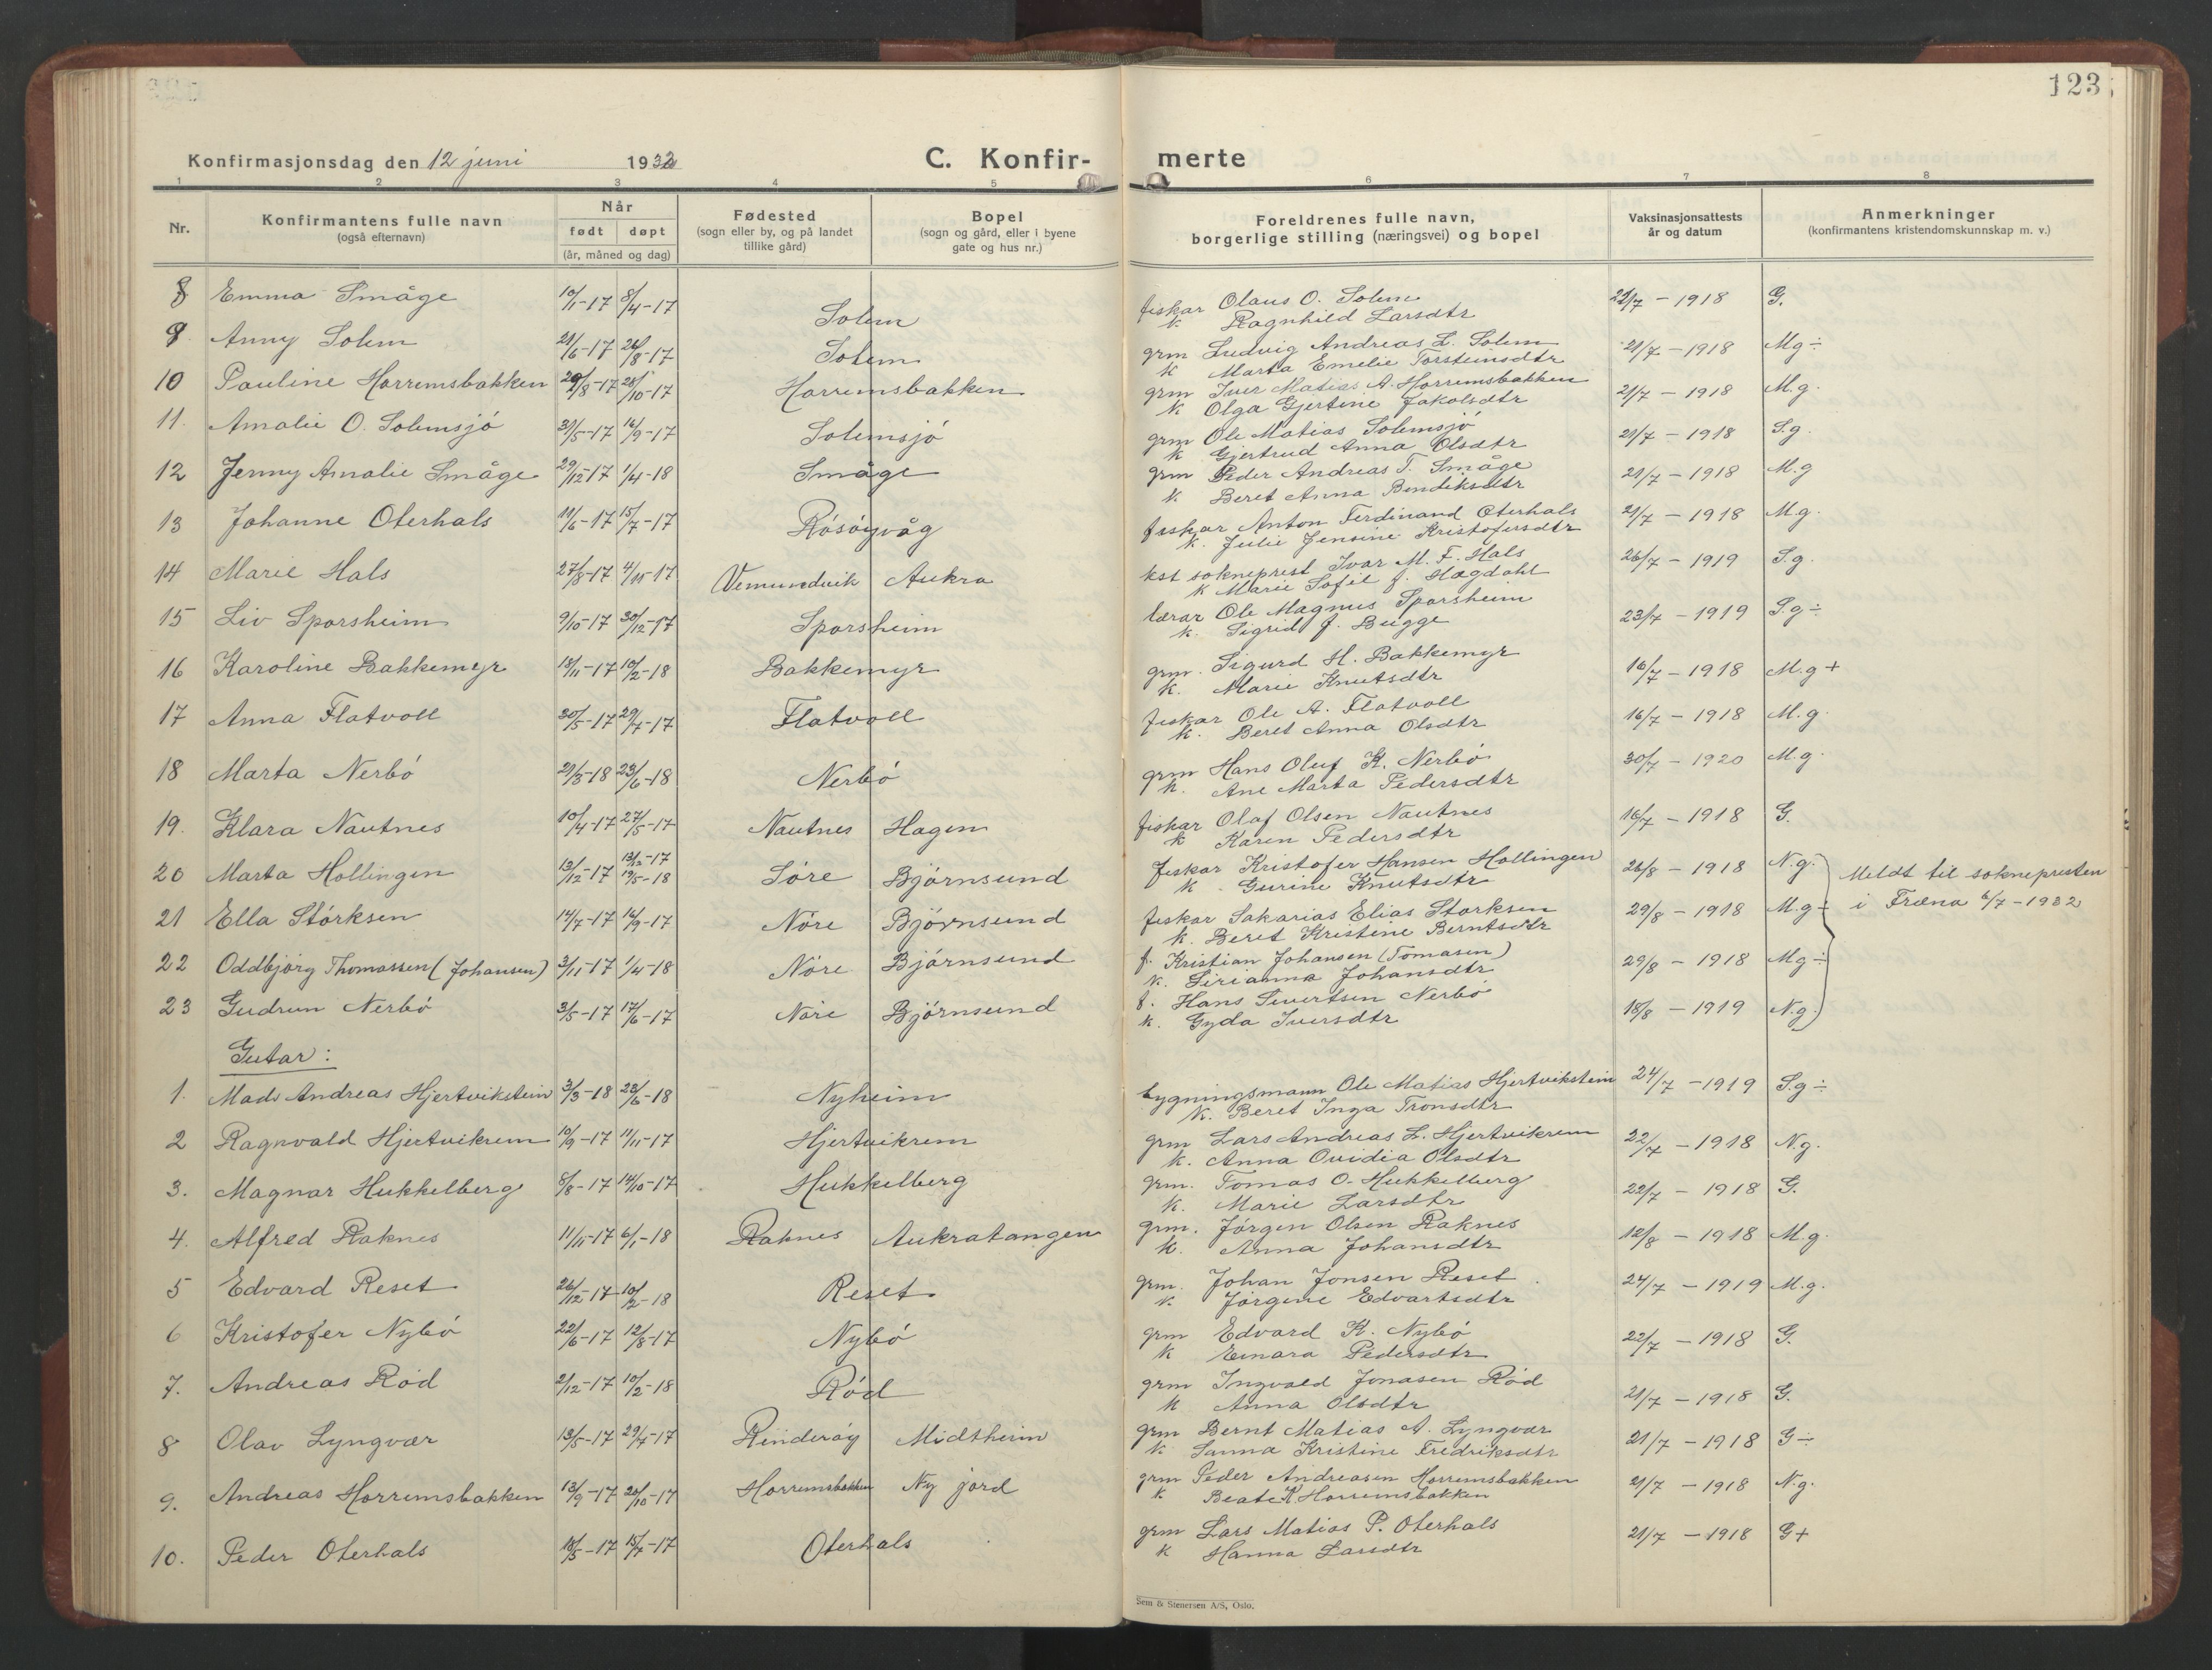 123
Konfirmasjonsdag den 12 juni 1932
C. Konfirmerte
1 2 3 4 5 6 7 8
Nr. Konfirmantens fulle navn (også efternavn) Når født døpt (år, måned og dag) Fødested (sogn eller by, og på landet tillike gård) Bopel (sogn og gård, eller i byene gate og hus nr.) Foreldrenes fulle navn, borgerlige stilling (næringsvei) og bopel Vaksinasjonsattests år og datum Anmerkninger (konfirmantens kristendomskunnskap m. v.)
8 Emma Småge 10/1-17 8/4-17 Solem fiskar Olaus O. Solem 22/7 - 1918 G.
k. Ragnhild Larsdtr
9 Anny Solem 21/6-17 26/8-17 Solem grm Ludvig Andreas L. Solem 21/7 - 1918 Mg ÷
k Marta Emelie Torsteinsdtr
10 Pauline Horremsbakken 29/8-17 28/10-17 Horremsbakken grm Iver Matias A. Horremsbakken 21/7 - 1918 M.g.
k Olga Gjertine Jakobsdtr
11. Amalie O. Solemsjó 31/5-17 16/9-17 Solemsjó grm Ole Matias Solemsjó 21/7 - 1918 S.g.
k Gjertrud Anna Olsdtr
12 Jenny Amalie Småge 29/12-17 1/4-18 Småge grm Peder Andreas T. Småge 21/7 - 1918 M.g
k. Beret Anna Bendiksdtr
13 Johanne Oterhals 11/6-17 15/7-17 Rósóyvåg fiskar Anton Ferdinand Oterhals 21/7 - 1918 M.g.
k. Julie Jensine Kristofersdtr
14 Marie Hals 27/8-17 4/11-17 Vemundvik Aukra kst sokneprest Ivar M. F. Hals 26/7 - 1919 S.g.
k Marie Sofie f. Høgdahl
15 Liv Sporsheim 9/10-17 30/12-17 Sporsheim lærar Ole Magnus Sporsheim 23/7 - 1919 S.g ÷
k. Sigrid f. Bugge
16 Karoline Bakkemyr 18/11-17 10/2-18 Bakkemyr grm. Sigurd H. Bakkemyr 16/7 - 1918 M.g +
k. Marie Knutsdtr
17 Anna Flatvoll 30/5-17 29/7-17 Flatvoll fiskar Ole A. Flatvoll 16/7 - 1918 M.g.
k. Beret Anna Olsdtr
18 Marta Nerbó 21/3-18 23/6-18 Nerbó grm Hans Oluf K. Nerbó 30/7 - 1920 M.g.
k. Ane Marta Pedersdtr
19. Klara Nautnes 10/4-17 27/5-17 Nautnes Hagen fiskar Olaf Olsen Nautnes 16/7 - 1918 G.
k Karen Pedersdtr
20 Marta Hollingen 13/12-17 13/12-17 19/5-18 Sóre Bjórnsund fiskar Kristofer Hansen Hollingen 26/8 - 1918 N.g. Meldt til soknepresten
k. Gurine Knutsdtr
21 Ella Stórksen 14/7-17 16/9-17 Nóre Bjórnsund fiskar Sakarias Elias Storksen 29/8 - 1918 M.g ÷ i Fræna 6/7 - 1932
k. Beret Kristine Berntsdtr
22 Oddbjórg Thomassen (Johansen) 3/11-17 1/4-18 Nóre Bjórnsund f. Kristian Johansen (Tomasen) 29/8 - 1918 Mg ÷
k. Sirianna Johansdtr
23 Gudrun Nerbó 3/5-17 17/6-17 Nóre Bjórnsund f. Hans Sivertsen Nerbó 18/8 - 1919 N.g.
k. Gyda Iversdtr
Gutar:
1. Mads Andreas Hjertvikstein 3/3-18 23/6-18 Nyheim bygningsmann Ole Matias Hjertvikstein 24/7 - 1919 S.g ÷
k. Beret Inga Tronsdtr
2 Ragnvald Hjertvikrem 10/9-17 11/11-17 Hjertvikrem grm Lars Andreas L. Hjertvikrem 22/7 - 1918 N.g.
k. Anna Ovidia Olsdtr
3. Magnar Hukkelberg 8/8-17 14/10-17 Hukkelberg grm. Tomas O. Hukkelberg 22/7 - 1918 G.
k. Marie Larsdtr
4. Alfred Raknes 11/11-17 6/1-18 Raknes Aukratangen grm. Jórgen Olsen Raknes 12/8 - 1918 M.g.
k. Anna Johansdtr
5 Edvard Reset 26/12-17 10/2-18 Reset grm. Johan Jonsen Reset 24/7 - 1919 M.g.
k. Jórgene Edvartsdtr
6 Kristofer Nybó 22/6-17 12/8-17 Nybó grm Edvard K. Nybó 22/7 - 1918 G.
k Einara Pedersdtr
7. Andreas Ród 2/12-17 10/2-18 Ród grm Ingvald Jonasen Ród 21/7 - 1918 G.
k Anna Olsdtr
8 Olav Lyngvær 13/5-17 29/7-17 Rinderóy Midtheim grm Bernt Matias A. Lyngvær 21/7 - 1918 G ÷
k. Sanna Kristine Fredriksdtr
9. Andreas Horremsbakken 13/9-17 20/10-17 Horremsbakken Ny jord grm Peder Andreasen Horremsbakken 21/7 - 1918 N.g.
k. Beate K Horremsbakken
10. Peder Oterhals 18/5-17 15/7-17 Oterhals grm Lars Matias P. Oterhals 21/7 - 1918 G +
k Hanna Larsdtr
Sem & Stenersen A/S, Oslo.